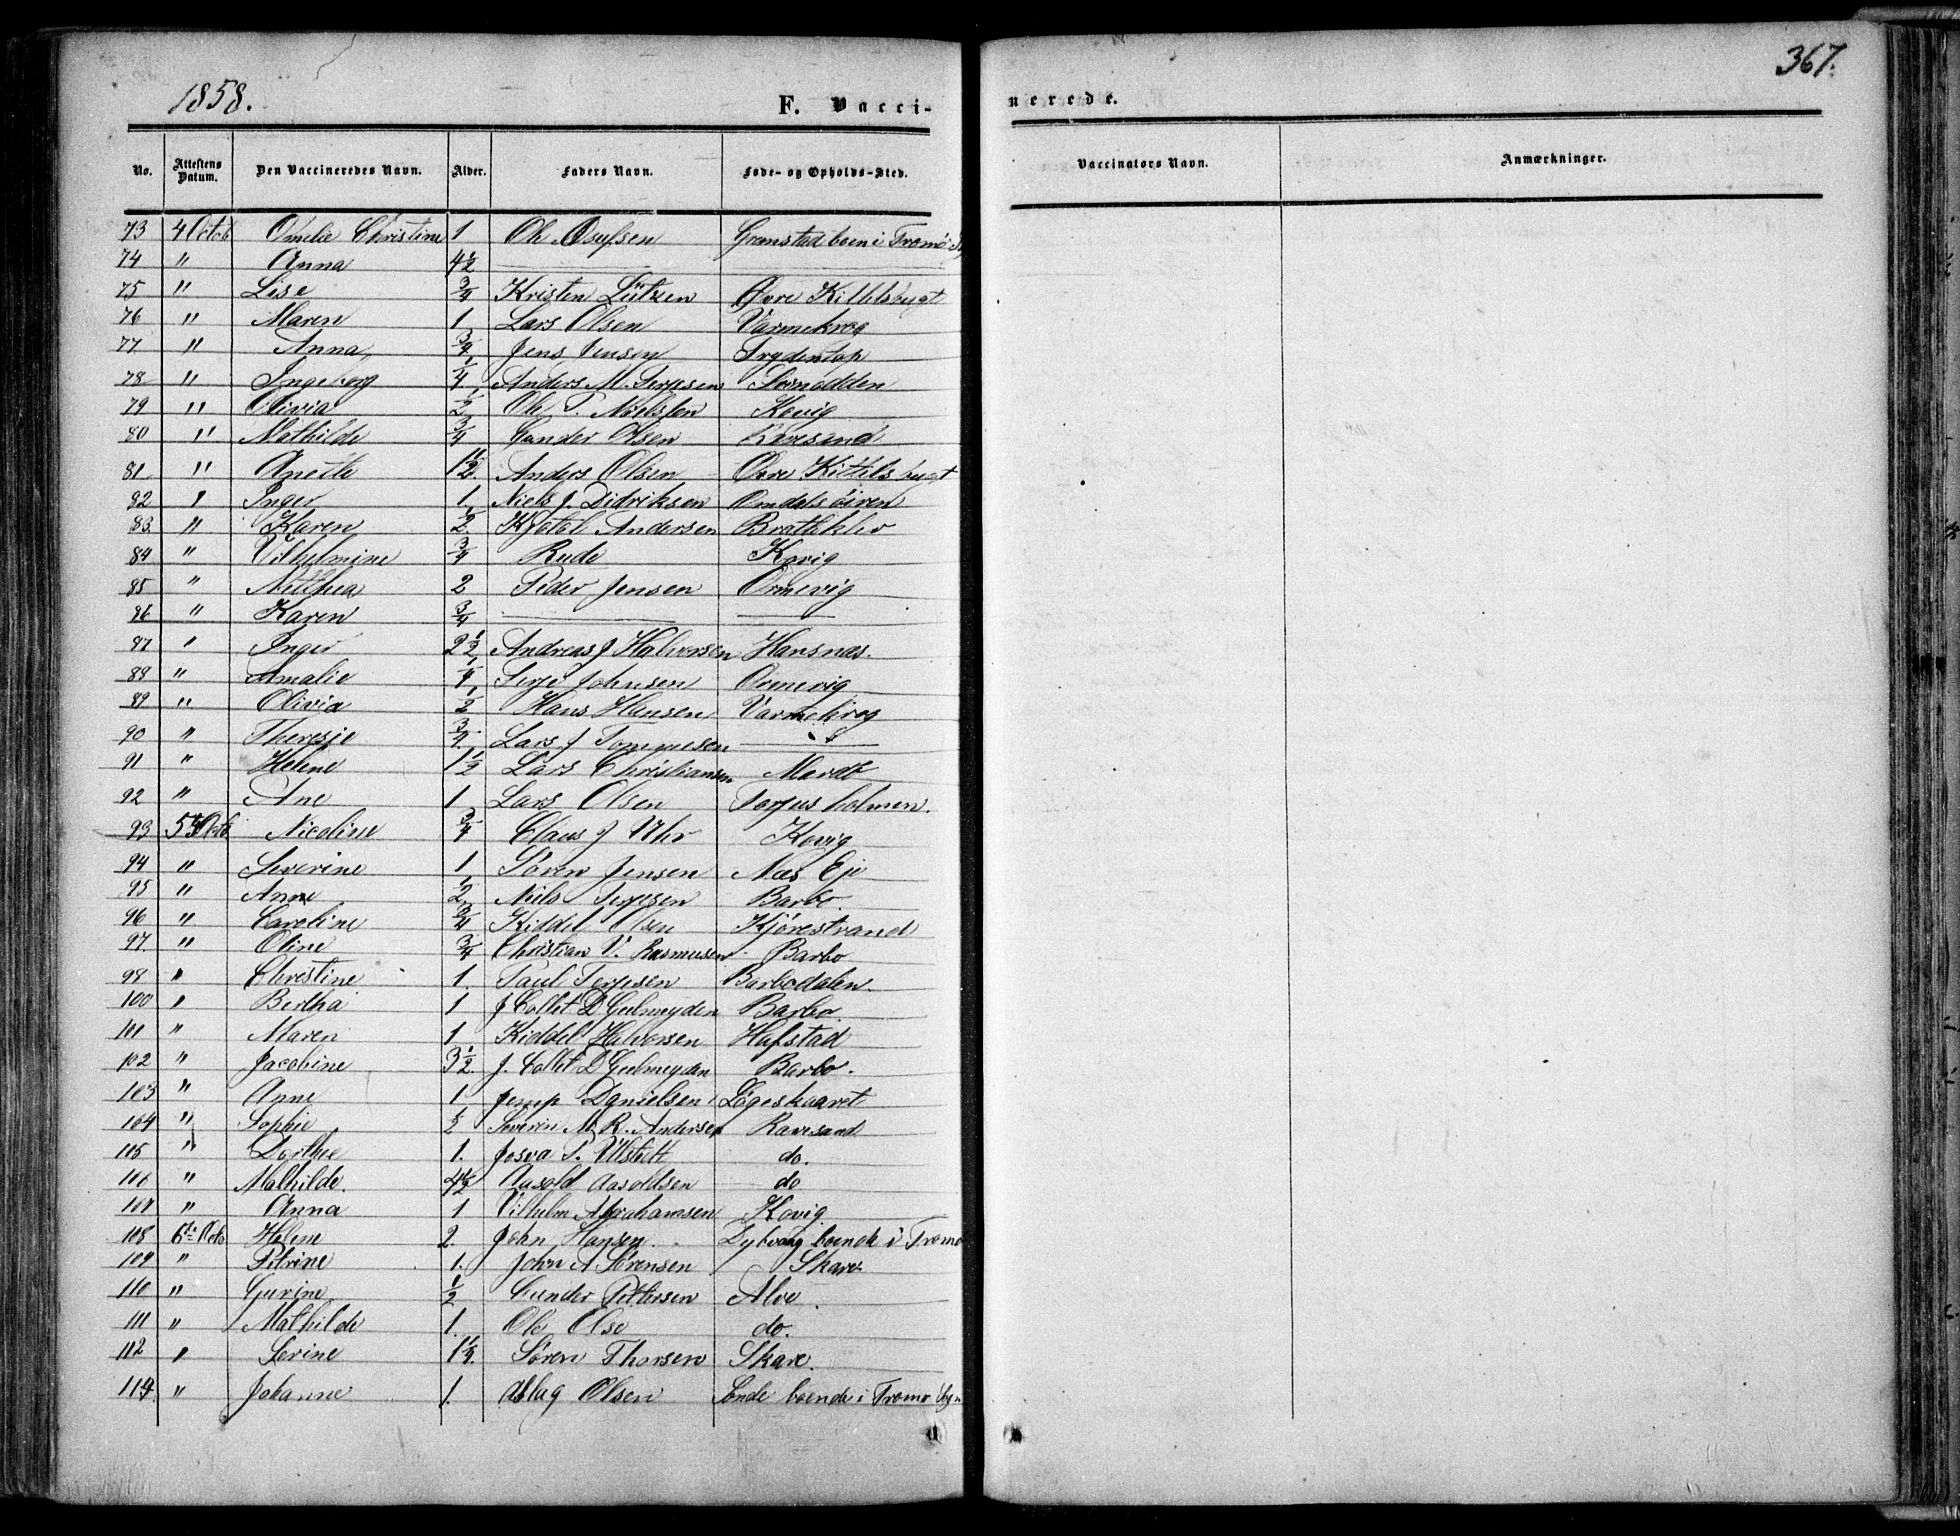 1858.
F. Vacci-
No. Attestens Datum. Den Vaccineredes Navn. Alder. Faders Navn. Føde- og Opholds-Sted.
73 4 Octob Christine 1 Ole Grønstad boen i Tromø
74 " Anna 4½ —
75 " Lise ¾ Kristen Lützen Øvre Kittelsbugt
76 " Maren 1 Lars Olsen Varmekrog
77 " Anna ¾ Jens Jensen
78 " Ingeborg ¼ Anders M. Terjesen
79 " Olivia ½ Ole T. Nielssen Kovig
80 " Mathilde ¾ Gunder Olsen Ravesand
81 " Anette 1½ Anders Olsen Øvre Kittelsbugt
82 " Inger 1 Niels J. Didriksen Omdalsöiren
83. " Karen ½. Kjøtol Andersen Bratteklev
84 " Vilhelmine ¾ Rude Kovig
85 " Mitthea 2 Peder Jensen Ormevig
86 " Karen ¾ — —
87 " Inger 2½ Andreas J Halvorsen Hansnæs.
89 " Amalie ¼ Terje Johnsen Ormevig
89 " Olivia ½ Hans Hansen Varmekrog
90 " Theresie ¾ Lars J Tommesen —
91 " Helene 1½ Lars Christiansen Mardø
92 " Ane 1 Lars Olsen Torjusholmen.
93 5te Octb. Nicoline ¾ Claus J Uhr Kovig
94 " Severine 1 Søren Jensen Næs Eje
95 " Anne ½ Niels Terjesen Barbo.
96 " Caroline ¾ Kiddel Olsen Kjørestrand
97. " Oline ¾ Christian V. Rasmusen Barbo
98 " Christine 1. Paul Terjesen Barbodalen.
100 " Bertha 1 J Collet D Geelmeyden Barbo.
101 " Maren 1 Kiddel Halvorsen Hafstad
102 " Jacobine 3½. J. Collet D Geelmeyden Barbo.
103 " Anne 1 Danielsen
104 " Sophie ½ Severin M. R. Andersen Ravesand
105 " Dorthee 1. Josva P. Ulstedt do.
106 " Mathilde. 4½ Aasold Aasoldsen do
107 " Anna 1 Vilhelm Abrahamsen Kovig
108 6te Octb Helene 2. John Hansen. Dybvaag boende i Tromø
109 " Petrine 1. John A Sørensen Skare
110 " Gurine ½ Gunder Pettersen Alve.
111 " Mathilde 1. Ole Olse do.
112 " Serine 1¼. Søren Thorsen Skare.
114 " Johanne 1. Aslag Olsen Sønde boende i Tromø Sogn
367.
nerede.
Vaccinators Navn. Anmærkninger.